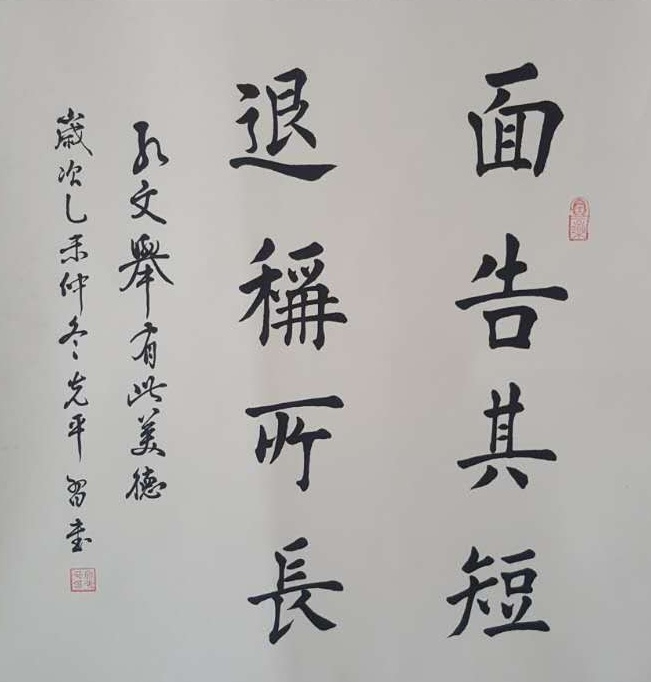 面告其短
退稱所長
孔文舉有此美德
歲次乙未仲冬先平習書